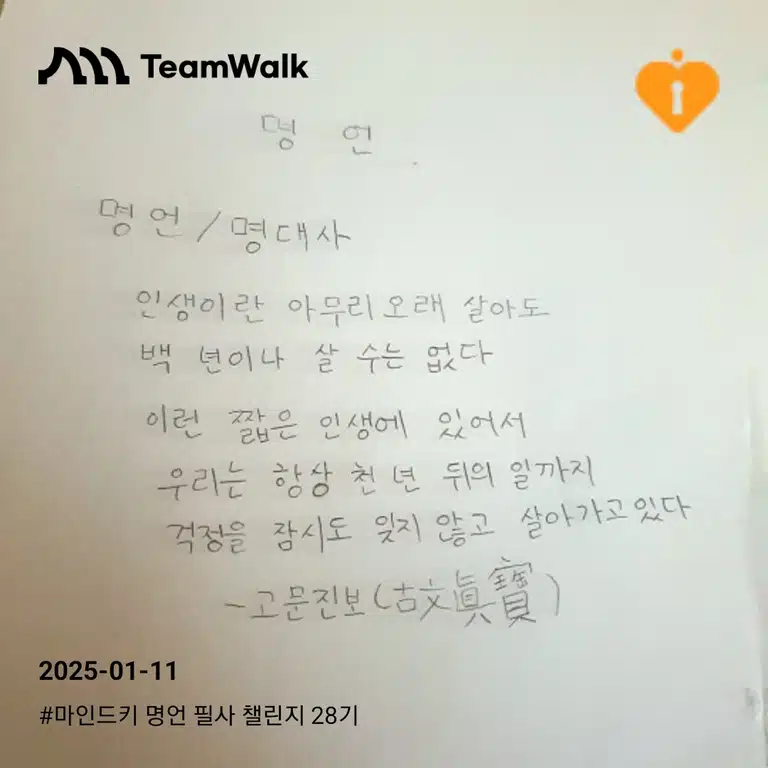 TeamWalk
명 언
명언/명대사
인생이란 아무리 오래 살아도
백 년이나 살 수는 없다
이런 짧은 인생에 있어서
우리는 항상 천 년 뒤의 일까지
걱정을 잠시도 잊지 않고 살아가고있다
-고문진보(古文眞寶)
2025-01-11
#마인드키 명언 필사 챌린지 28기